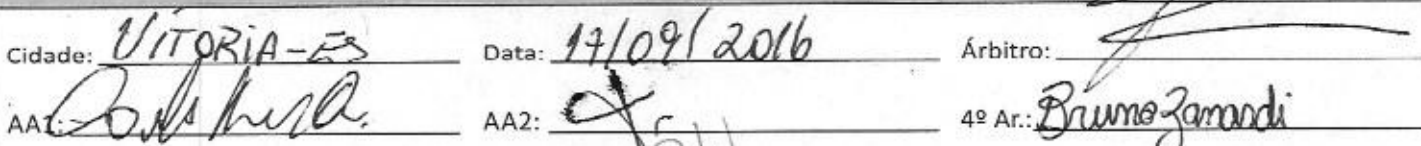 Cidade: VITORIA-ES Data: 17/09/2016 Árbitro:
AA1: AA2: 4º Ar.: Bruno Zanandi